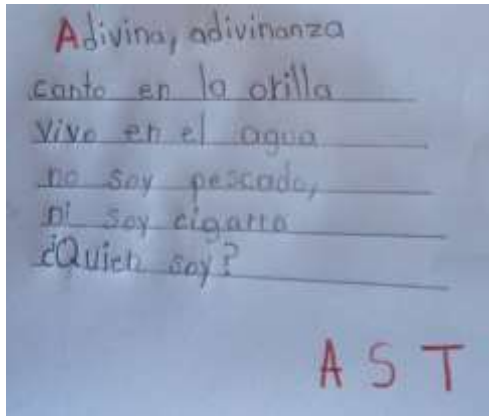 Adivina, adivinanza
canto en la orilla
vivo en el agua
no soy pescado,
ni soy cigarro
¿Quien soy?
A S T